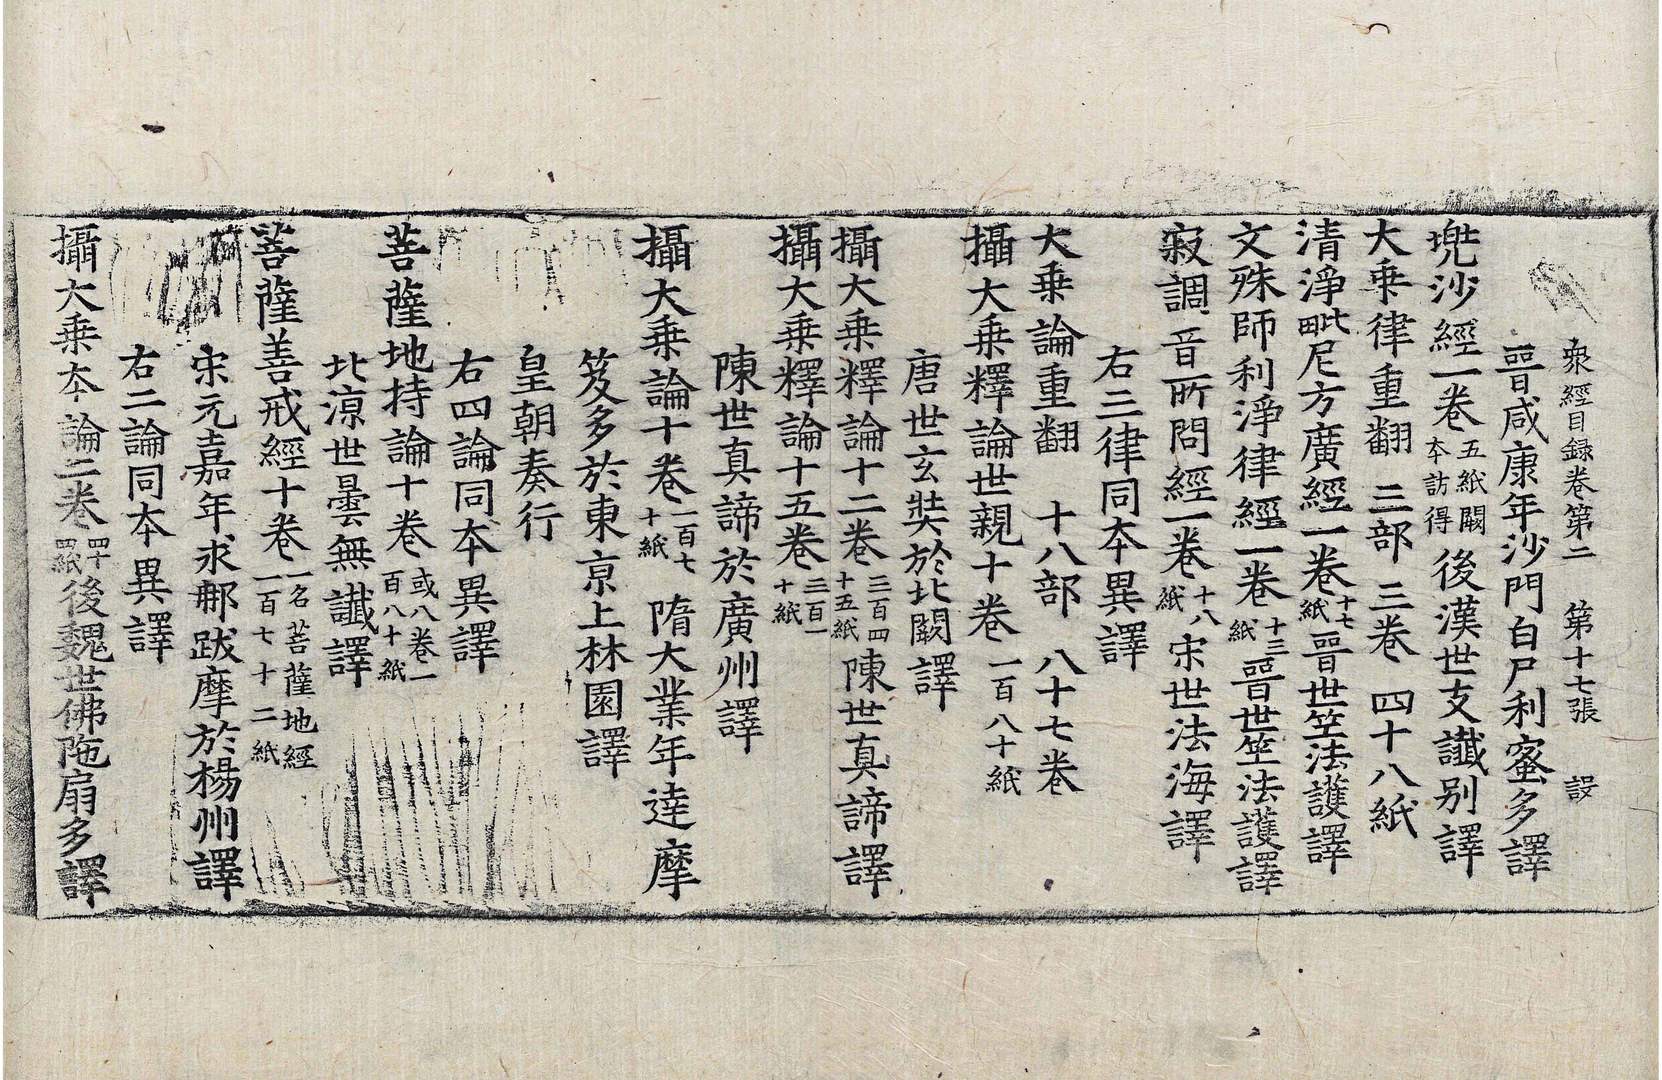 衆經目録卷第二　第十七張　設
晉咸康年沙門白尸利蜜多譯
兜沙經一卷五紙闕本訪得後漢世支讖别譯
大乗律重翻　三部　三卷　四十八紙
清淨毗尼方廣經一卷十七紙晉世笁法護譯
文殊師利淨律經一卷十三紙晉世笁法護譯
寂調音所問經一卷十八紙宋世法海譯
右三律同本異譯
大乗論重翻　十八部　八十七卷
攝大乗釋論世親十卷一百八十紙
唐世玄奘於北闕譯
攝大乗釋論十二卷三百四十五紙陳世真諦譯
攝大乗釋論十五卷三百一十紙
陳世真諦於廣州譯
攝大乗論十卷一百七十紙　隋大業年達摩
笈多於東京上林園譯
皇朝奏行
右四論同本異譯
菩薩地持論十卷或八卷一百八十紙
北涼世曇無讖譯
菩薩善戒經十卷一名菩薩地經一百七十二紙
宋元嘉年求郍跋摩於楊州譯
右二論同本異譯
攝大乗本論二卷四十四紙後魏世佛陁扇多譯